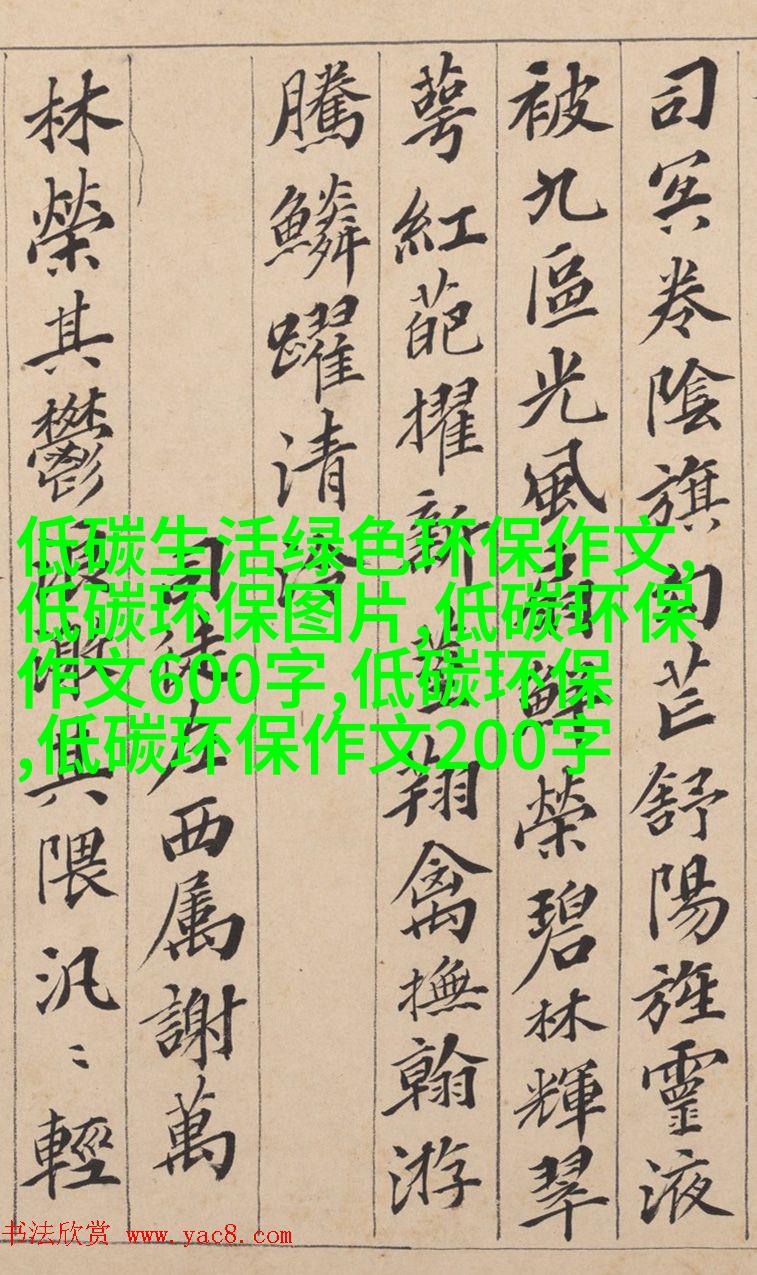 司冥卷陰旗句芒舒陽旌靈液
被九區光風扇鮮榮碧林輝翠
萼紅葩擢新莖翔禽撫翰游
騰鱗躍清泠
司徒左西属謝萬
林榮其鬱浪激其隈汎〻輕
低碳生活绿色环保作文,
低碳环保图片,低碳环保
作文600字,低碳环保
,低碳环保作文200字
书法欣赏 www.yac8.com